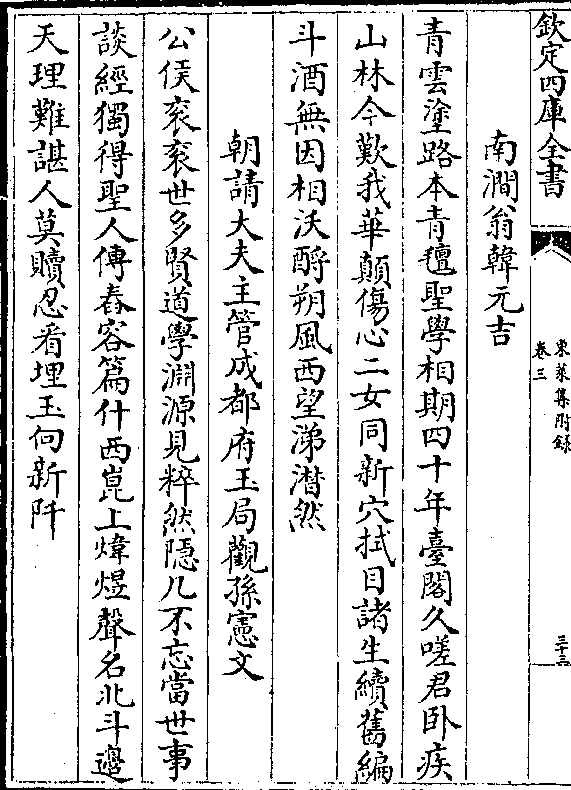 欽定四庫全書
東萊集附錄
卷三
三十三
南澗翁韓元吉
青雲塗路本青氊聖學相期四十年臺閣久嗟君卧疾
山林今歎我華顛傷心二女同新穴拭目諸生續舊編
斗酒無因相沃酹朔風西望涕潸然
朝請大夫主管成都府玉局觀孫憲文
公侯衮衮世多賢道學淵源見粹然隠几不忘當世事
談經獨得聖人傳舂容篇什西崑上煒煜聲名北斗邊
天理難諶人莫贖忍看埋玉向新阡